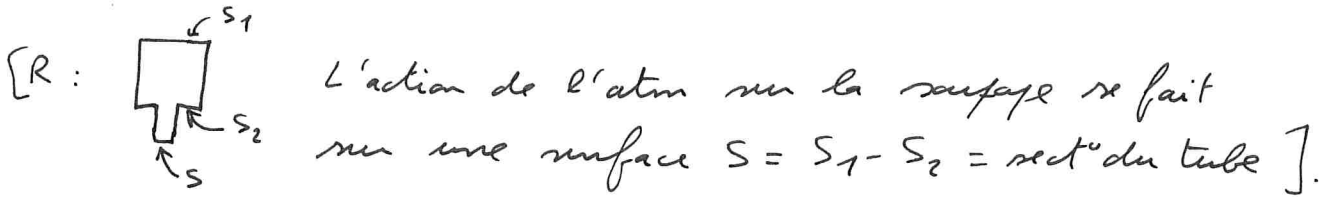 S1
[R : L'action de l'atm sur la soupape se fait
S2
sur une surface S = S1 - S2 = sect° du tube ].
S